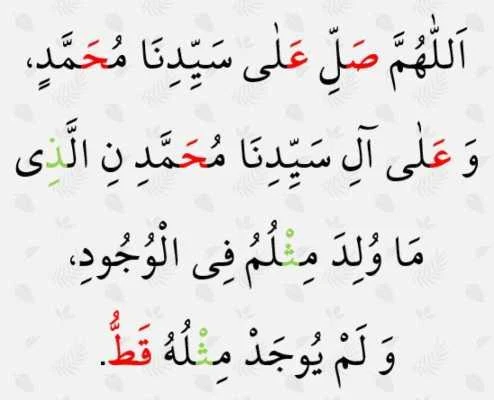 اَللّٰهُمَّ صَلِّ عَلٰى سَيِّدِنَا مُحَمَّدٍ،
وَ عَلٰى آلِ سَيِّدِنَا مُحَمَّدِ نِ الَّذِى
مَا وُلِدَ مِثْلُمُ فِى الْوُجُودِ،
وَ لَمْ يُوجَدْ مِثْلُهُ قَطُّ.